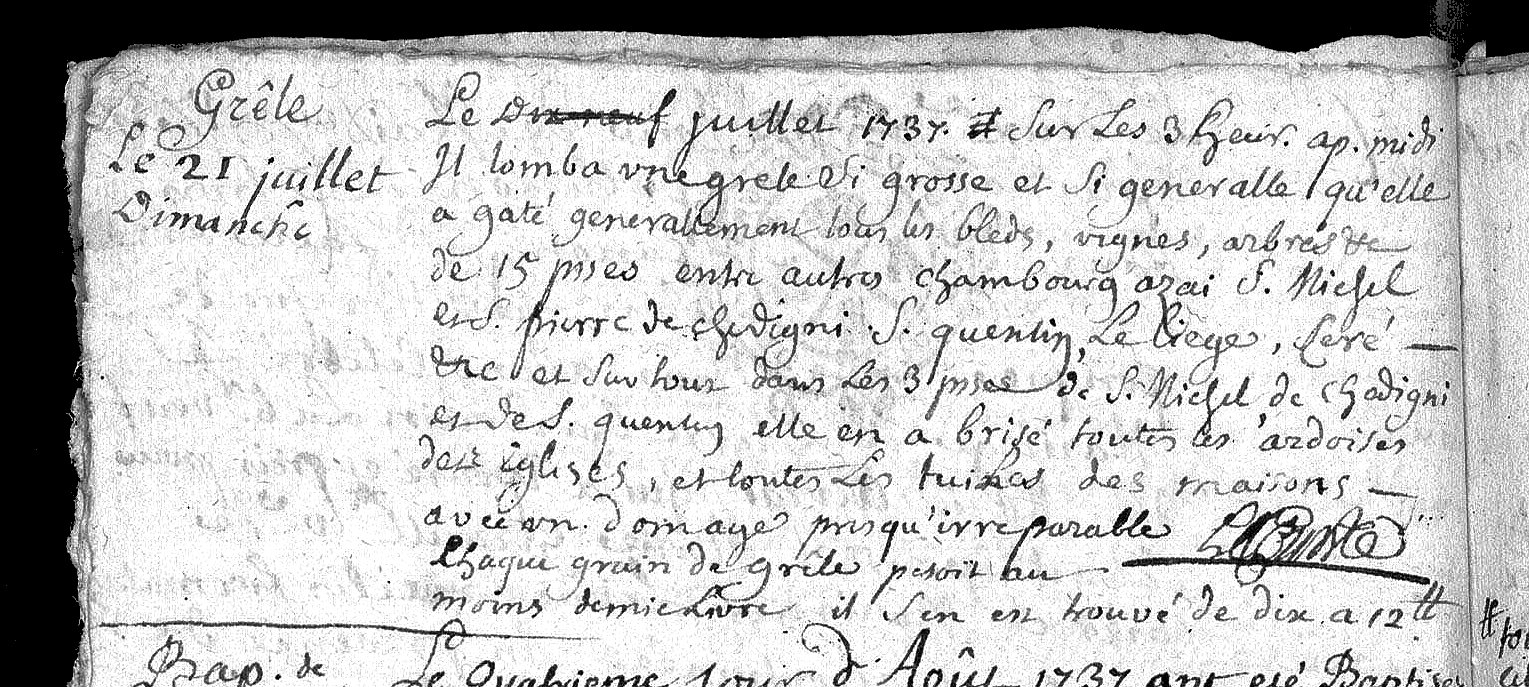 Grêle
Le 21 juillet
Dimanche
Le Dix neuf juillet 1737. # Sur Les 3 heur. ap. midi
Il tomba vne grele Si grosse et Si generalle qu'elle
a gâté generallement tous les bleds, vignes, arbres &c
de 15 psses entre autres chambourg azai S. Michel
et S. pierre de chedigni S. quentin, Le liege, Ceré —
&c et Sur tout dans Les 3 psses de S. Michel de chedigni
et de S. quentin elle en a brisé toutes les ardoises
des Eglises, et toutes Les tuilles des maisons —
avec vn. domage presqu'irreparable
Chaque grain de grêle pesoit au
moins demie Livre il s'en est trouvé de dix a 12 tt
Bap. de
Le Quatrieme Jour d'Août 1737 ont été Baptisé